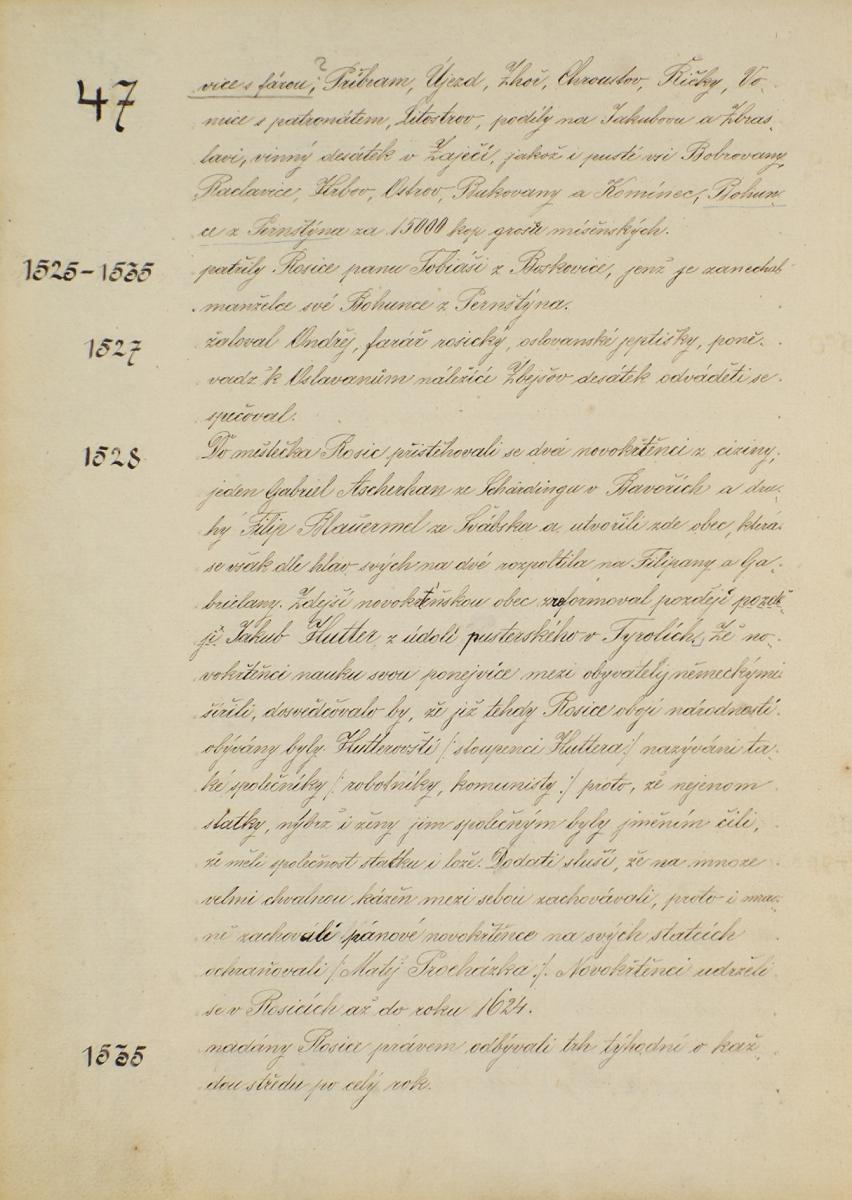 47
?
vice s fárou; Příbram, Újezd, Zhoř, Chroustov, Říčky, Vo-
nuce s patronátem, Litostrov, podíly na Jakubovu a Zbras-
lavi, vinný desátek v Zaječí, jakož i pusté vsi Bobrovany,
Raclavice, Hrbov, Ostrov, Bukovany a Komínec, Bohun-
ce z Pernštýna za 15000 kop grošů míšeňských.
1525-1535 patřily Rosice panu Tobiáši z Boskovic, jenž je zanechal
manželce své Bohunce z Pernštýna.
1527 žaloval Ondřej, farář rosický, oslovanské jeptišky, poně-
vadž k Oslavanům náležící Zbejšov desátek odváděti se
spěčoval.
1528 Do městečka Rosic přistěhovali se dvá novokřtěnci z ciziny,
jeden Gabriel Ascherhan ze Schärdingu v Bavořích a dru-
hý Filip Blauermel ze Švábska a utvořili zde obec, která
se však dle hlav svých na dvé rozpoltila na Filipany a Ga-
brielany. Zdejší novokřtěnskou obec zreformoval později pozdě-
ji Jakub Hutter z údolí pusterského v Tyrolích. Že no-
vokřtěnci nauku svou ponejvíce mezi obyvateli německými
šířili, dosvědčovalo by, že již tehdy Rosice obojí národností
obývány byly. Hutterovští /: stoupenci Huttera :/ nazýváni ta-
ké společníky /: robotníky, komunisty :/ proto, že nejenom
statky, nýbrž i ženy jim společným byly jměním čili,
že měli společnost statku i lože. Dodati sluší, že na mnoze
velmi chvalnou kázeň mezi sebou zachovávali, proto i mno-
zachovali pánové novokřtěnce na svých statcích
ochraňovali /: Matěj Procházka :/. Novokřtěnci udrželi
se v Rosicích až do roku 1624.
1535 nadány Rosice právem odbývati trh týhodní o kaž-
dou středu po celý rok.